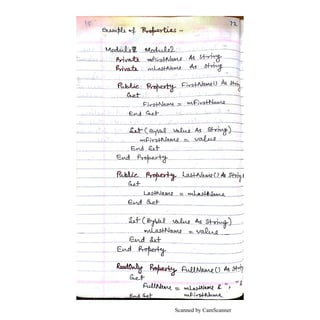 15 72
Example of Properties -
Module Module2
Private mFirstName As String
Private mLastName As String
Public Property FirstName() As String
Get
FirstName = mFirstName
End Get
Set (ByVal value As String)
mFirstName = value
End Set
End Property
Public Property LastName() As String
Get
LastName = mLastName
End Get
Set (ByVal value As String)
mLastName = value
End Set
End Property
ReadOnly Property FullName() As Stri
Get
FullName = mLastName & ", "
End Get mFirstName
Scanned by CamScanner